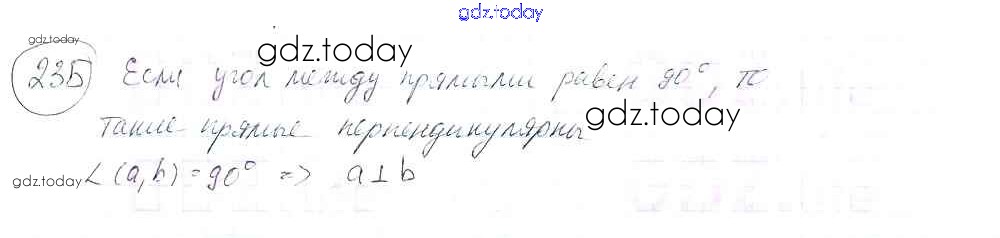 gdz.today
gdz.today
235 Если угол между прямыми равен 90°, то
gdz.today
такие прямые перпендикулярны
gdz.today
gdz.today ∠(a,b)=90° => a⊥b